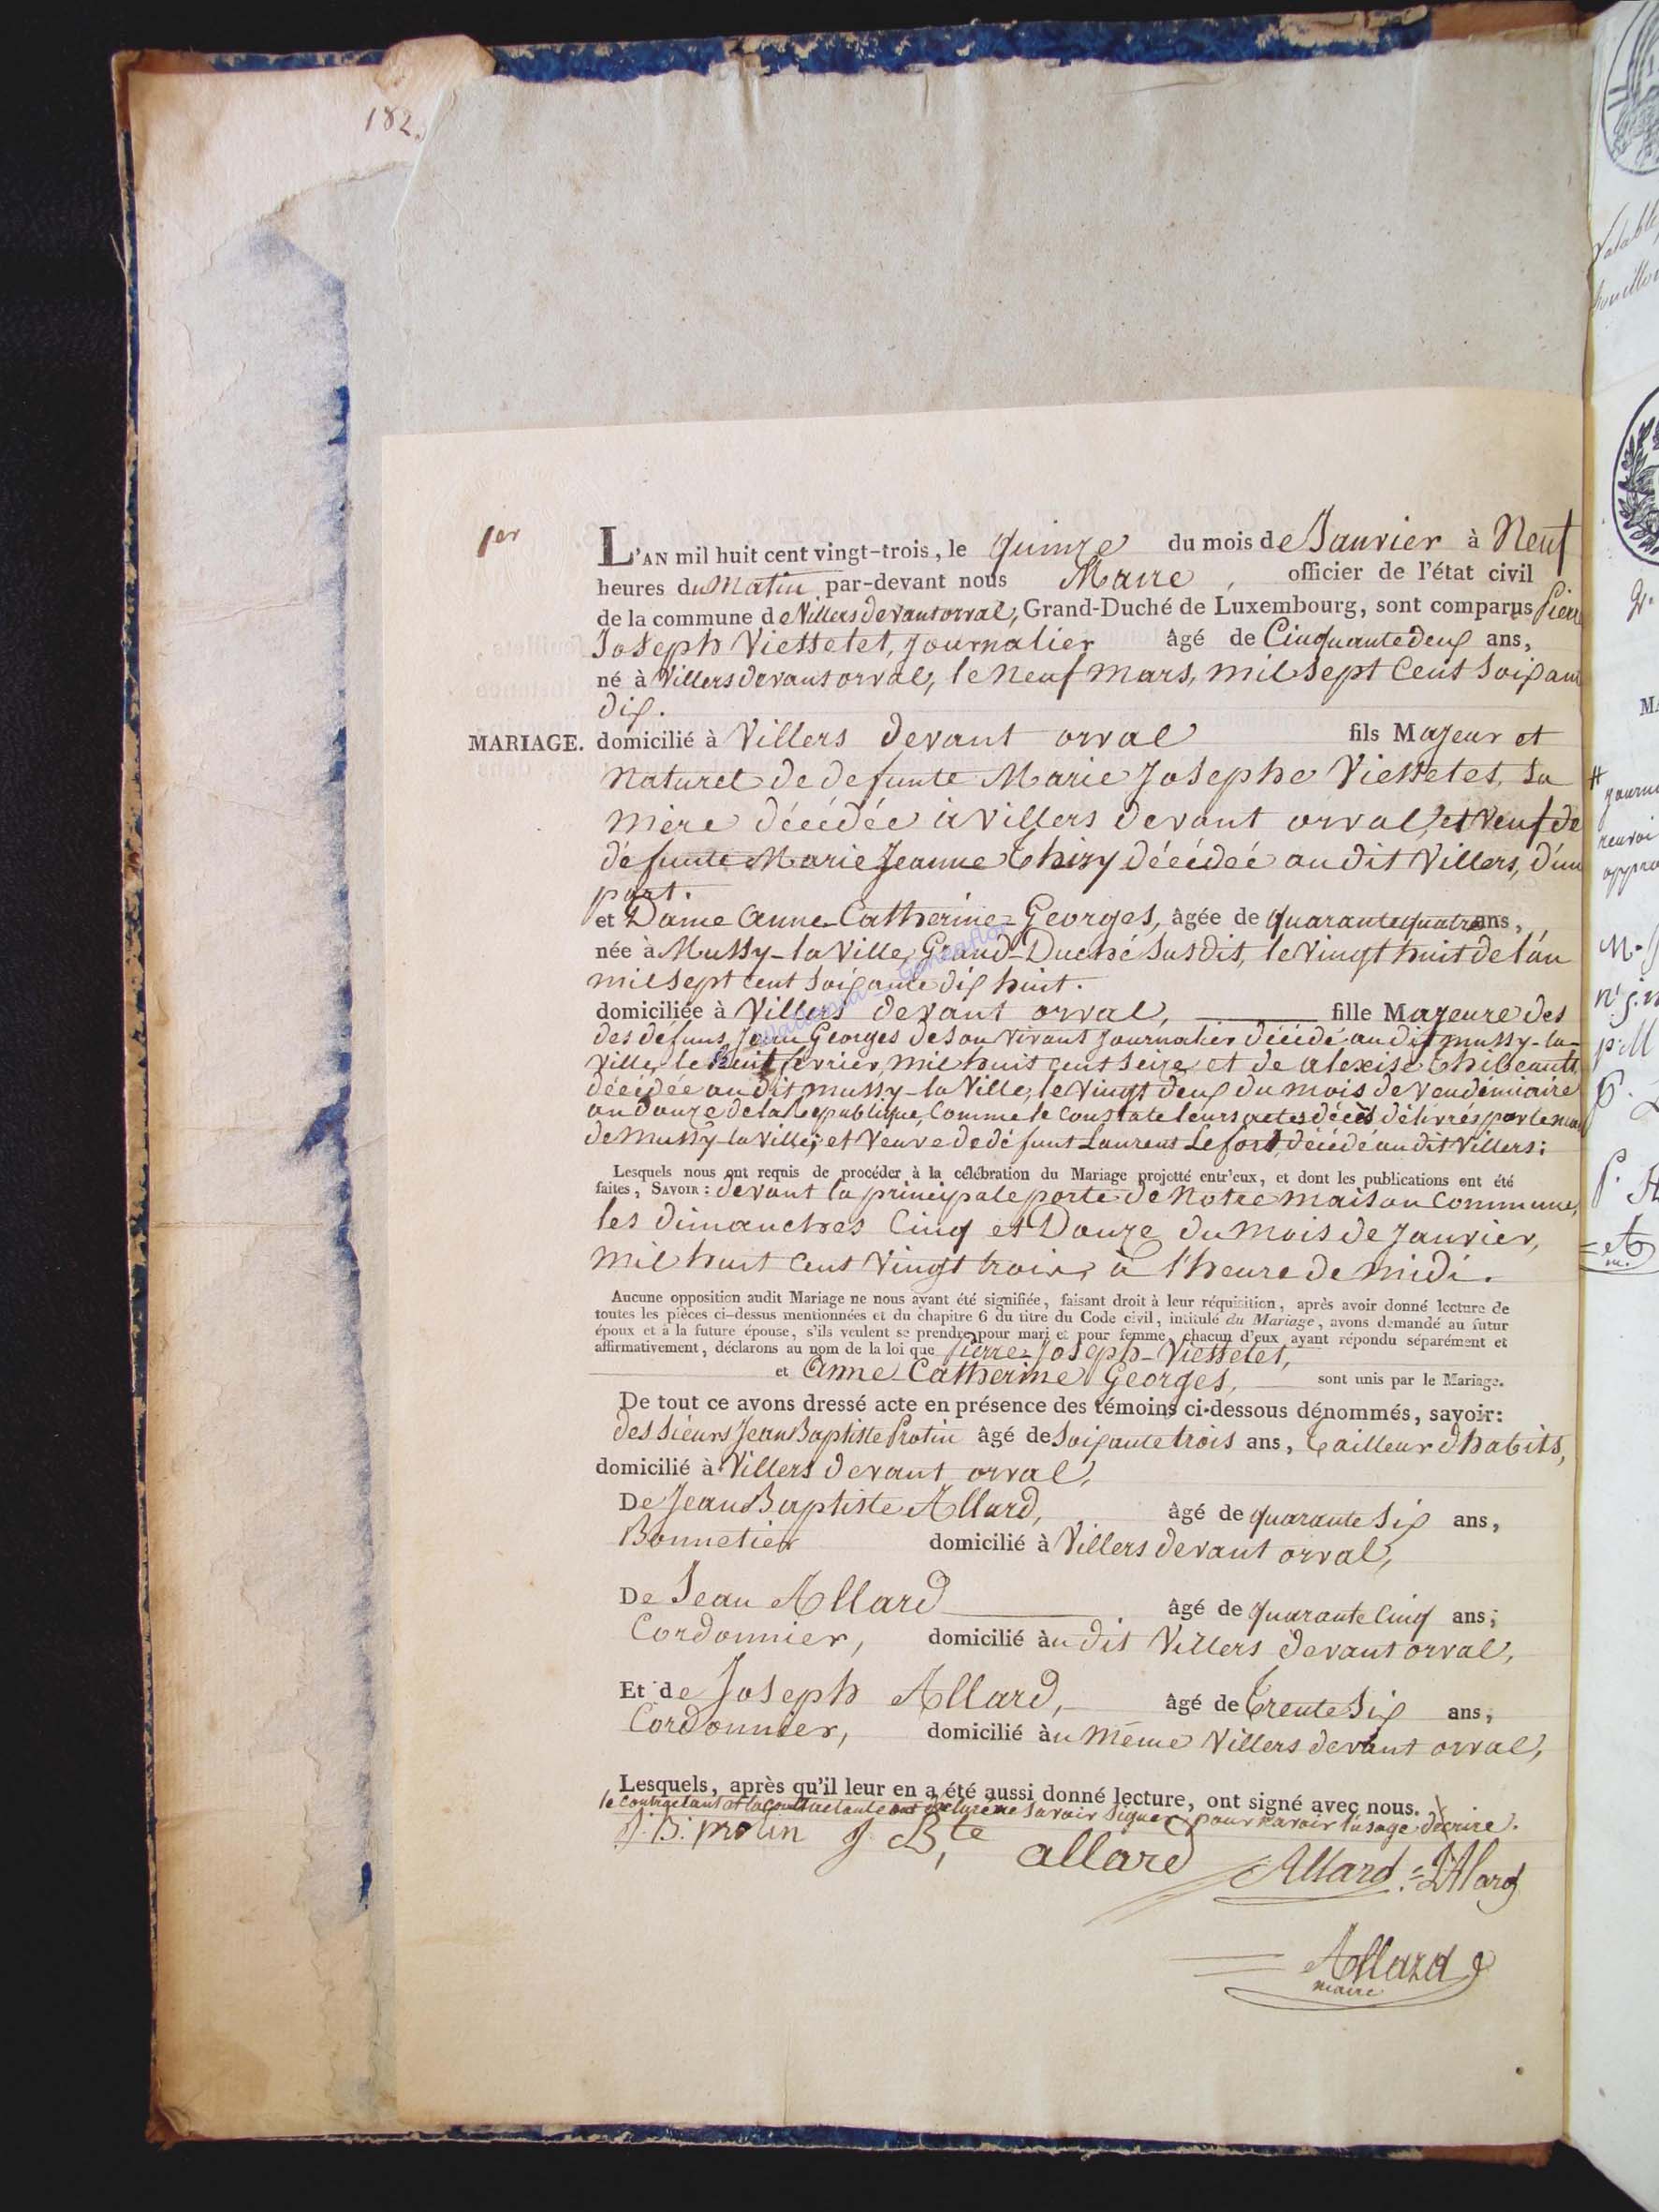 182.
1er
L'AN mil huit cent vingt-trois, le quinze du mois de Janvier à Neuf
heures du Matin par-devant nous Maire, officier de l'état civil
de la commune de Villers devant orval, Grand-Duché de Luxembourg, sont comparus Pierre
Joseph Viesselet, journalier âgé de Cinquante deux ans,
né à Villers devant orval, le neuf mars, mil sept cent soixante
dix.
MARIAGE. domicilié à Villers devant orval fils Majeur et
naturel de defunte Marie Josephe Viesselet, sa
mère décédée à villers devant orval, et veuf de
défunte Marie Jeanne Thiry décédée au dit Villers, d'une
part.
et Dame Anne Catherine Georges, âgée de quarante quatre ans,
née à Mussy-la Ville, Grand-Duché susdit, le vingt huit de l'an
mil sept cent soixante dix huit.
domiciliée à Villers devant orval, fille Majeure des
des défuns Jean Georges de son vivant journalier décédé au dit mussy-la-
ville, le huit fevrier, mil huit cent seize et de alexise Thibeaute
décédée au dit mussy-la Ville, le vingt deux du mois de vendémiaire
an douze de la Republique, Comme le constate leurs actes décès délivrés par le mai
de Mussy-la ville; et veuve de défunt Laurent Lefort, décédé au dit Villers;
Lesquels nous ont requis de procéder à la célébration du Mariage projetté entr'eux, et dont les publications ont été
faites, SAVOIR: devant la principale porte de notre maison commune,
les dimanches Cinq et Douze du mois de janvier,
mil huit cent vingt trois, à l'heure de midi.
Aucune opposition audit Mariage ne nous ayant été signifiée, faisant droit à leur réquisition, après avoir donné lecture de
toutes les pièces ci-dessus mentionnées et du chapitre 6 du titre du Code civil, intitulé du Mariage, avons demandé au futur
époux et à la future épouse, s'ils veulent se prendre pour mari et pour femme, chacun d'eux ayant répondu séparément et
affirmativement, déclarons au nom de la loi que Pierre-Joseph-Viesselet,
et Anne Catherine Georges, sont unis par le Mariage.
De tout ce avons dressé acte en présence des témoins ci-dessous dénommés, savoir:
des sieurs Jean Baptiste Protin âgé de Soixante trois ans, Tailleur d'habits,
domicilié à Villers devant orval,
De Jean Baptiste Allard, âgé de quarante six ans,
Bonnetier domicilié à Villers devant orval,
De Jean Allard âgé de quarante cinq ans,
Cordonnier, domicilié au dit Villers devant orval,
Et de Joseph Allard, âgé de Trente six ans,
Cordonnier, domicilié au même Villers devant orval,
Lesquels, après qu'il leur en a été aussi donné lecture, ont signé avec nous.
le contractant et la contractante ont declaré ne savoir signer pour n'avoir l'usage d'écrire.
J. B. protin J. Bte allard Allard J Alard
Allard
maire